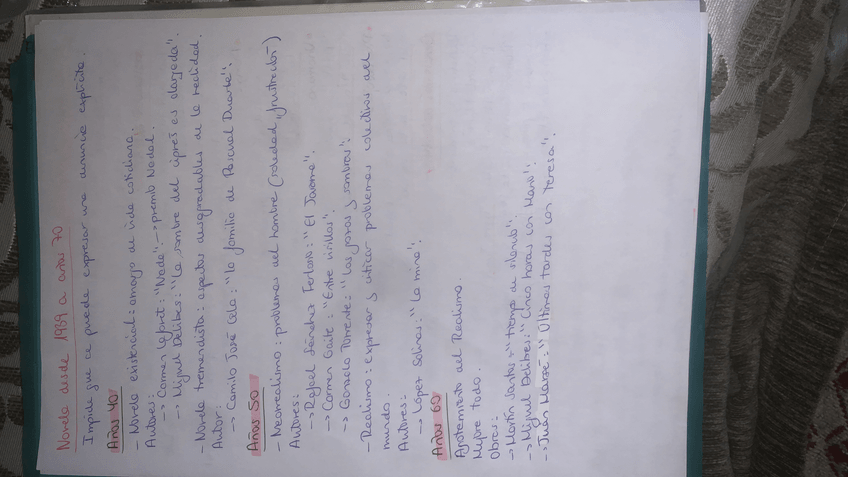 Novela desde 1939 a años 70
Impide que se puede expresar una denuncia explícita.
Años 40
- Novela existencial: amargo de vida cotidiana.
Autores:
→ Carmen Laforet: "Nada" → premio Nadal.
→ Miguel Delibes: "La sombra del ciprés es alargada".
- Novela tremendista: aspectos desagradables de la realidad.
Autor:
→ Camilo José Cela: "la familia de Pascual Duarte".
Años 50
- Neorrealismo: problemas del hombre (soledad, frustración)
Autores:
→ Rafael Sánchez Ferlosio: "El Jarama".
→ Carmen Gaite: "Entre visillos".
→ Gonzalo Torrente: "Los gozos y sombras".
- Realismo: expresar y criticar problemas colectivos del
mundo.
Autores:
→ López Salinas: "La mina".
Años 60
Agotamiento del Realismo.
todo.
Obras:
→ Martín Santos: "tiempo de silencio".
→ Miguel Delibes: "Cinco horas con Mario".
→ Juan Marsé: "Últimas tardes con Teresa".